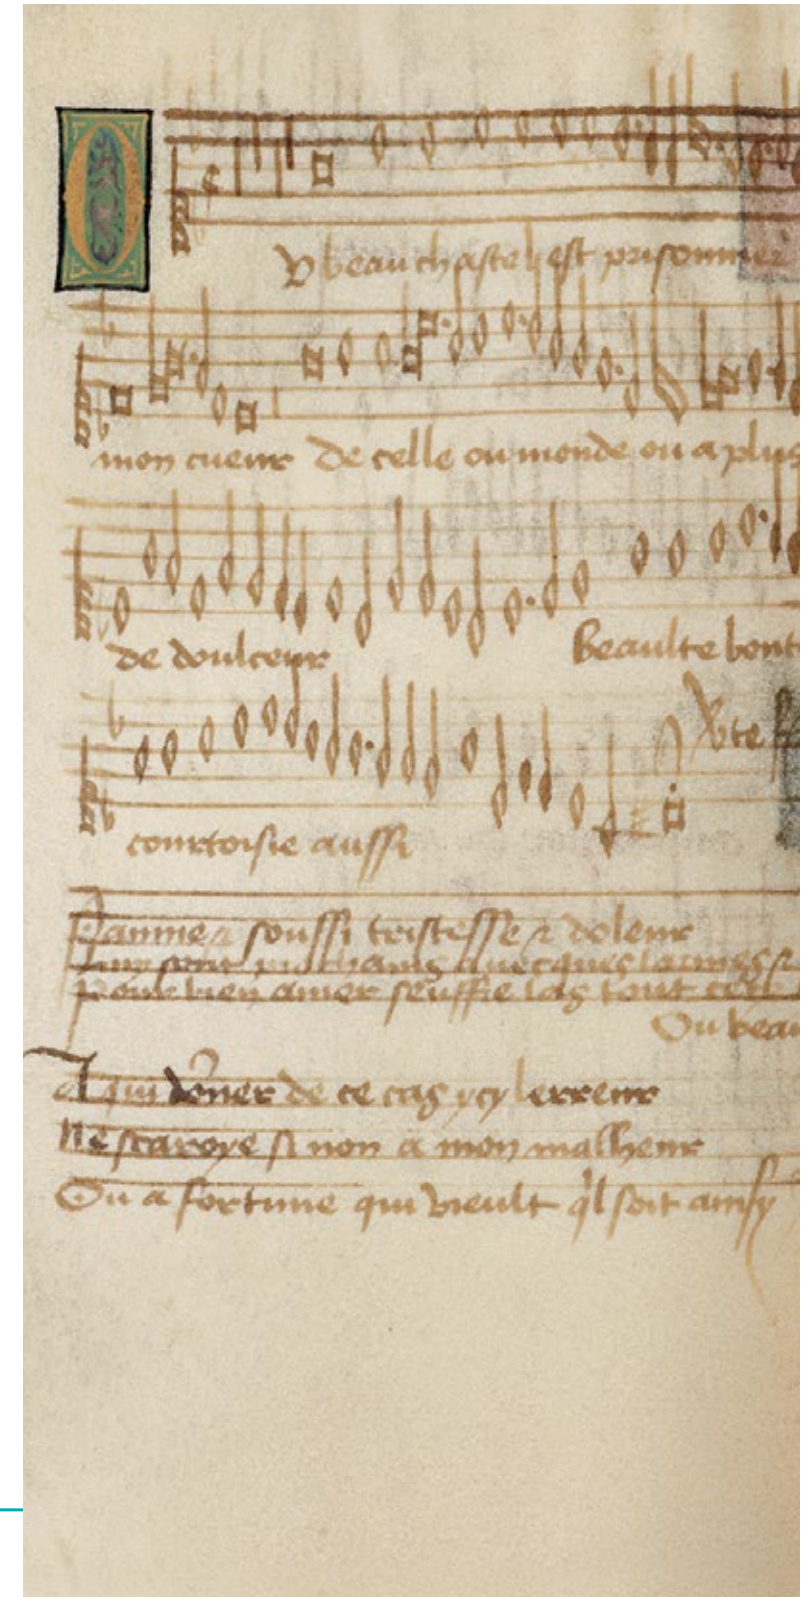 Ou beau chastel est prisonnier
mon cueur De celle ou monde ou a plus
de doulceur Beaulte bont
courtoisie aussi
Paine & soussi tristesse & doleur
avecques larmes &
pour bien amer seuffre las tout
Ou beau
A qui doner de ce cas ycy lerreur
Ne scaroye si non a mon malheur
Ou a fortune qui vieult ql soit ainsy